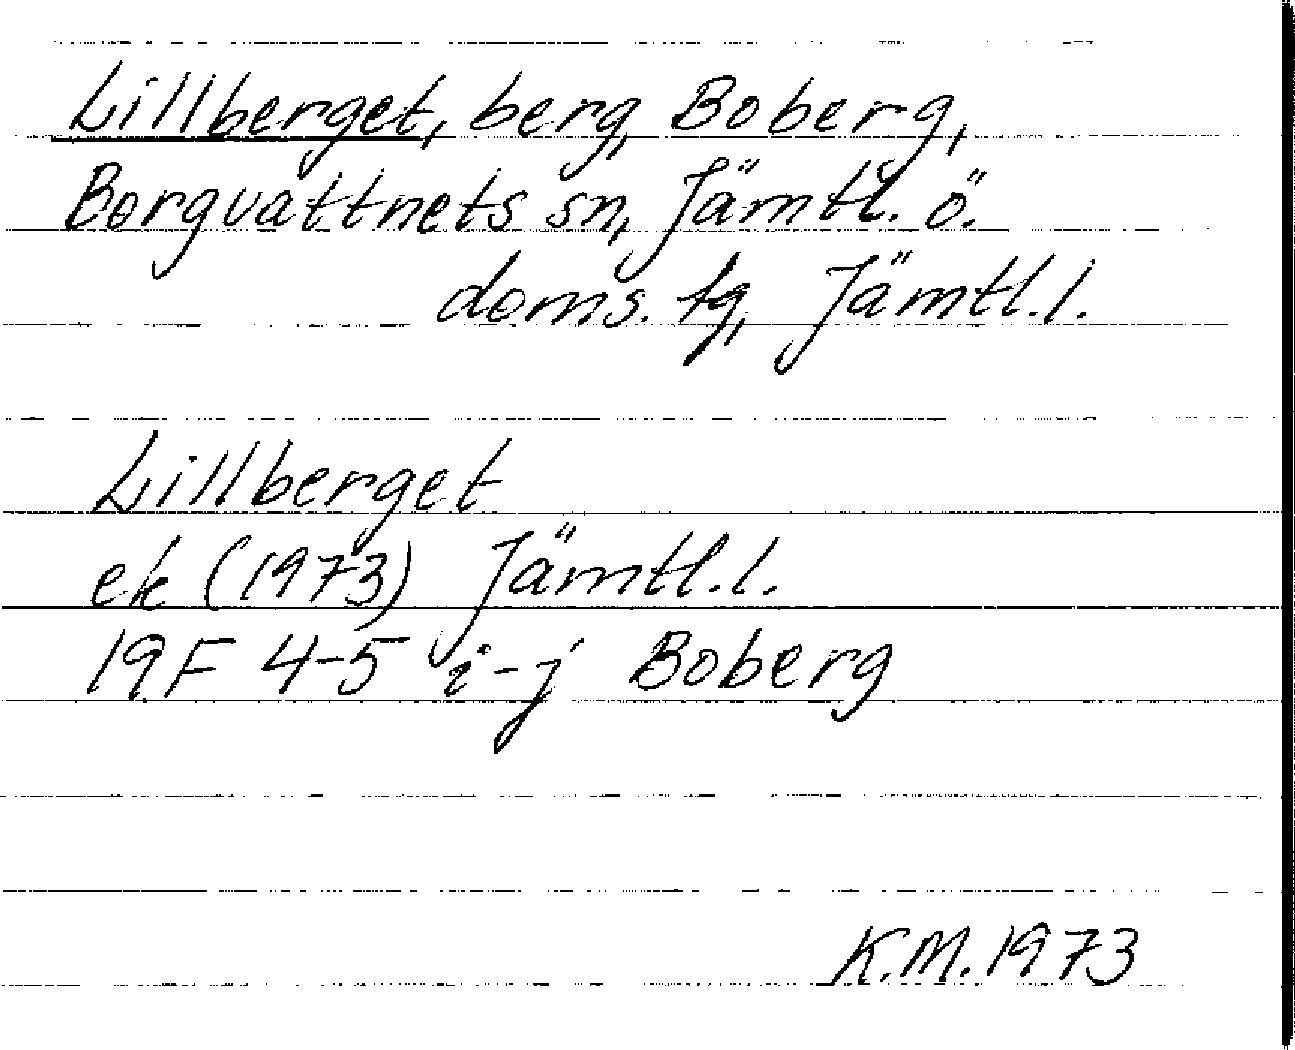 Lillberget, berg, Boberg,
Borgvattnets sn, Jämtl. ö.
doms. tg, Jämtl. l.
Lillberget
ek (1973) Jämtl. l.
19F 4-5 i-j Boberg
K.M. 1973